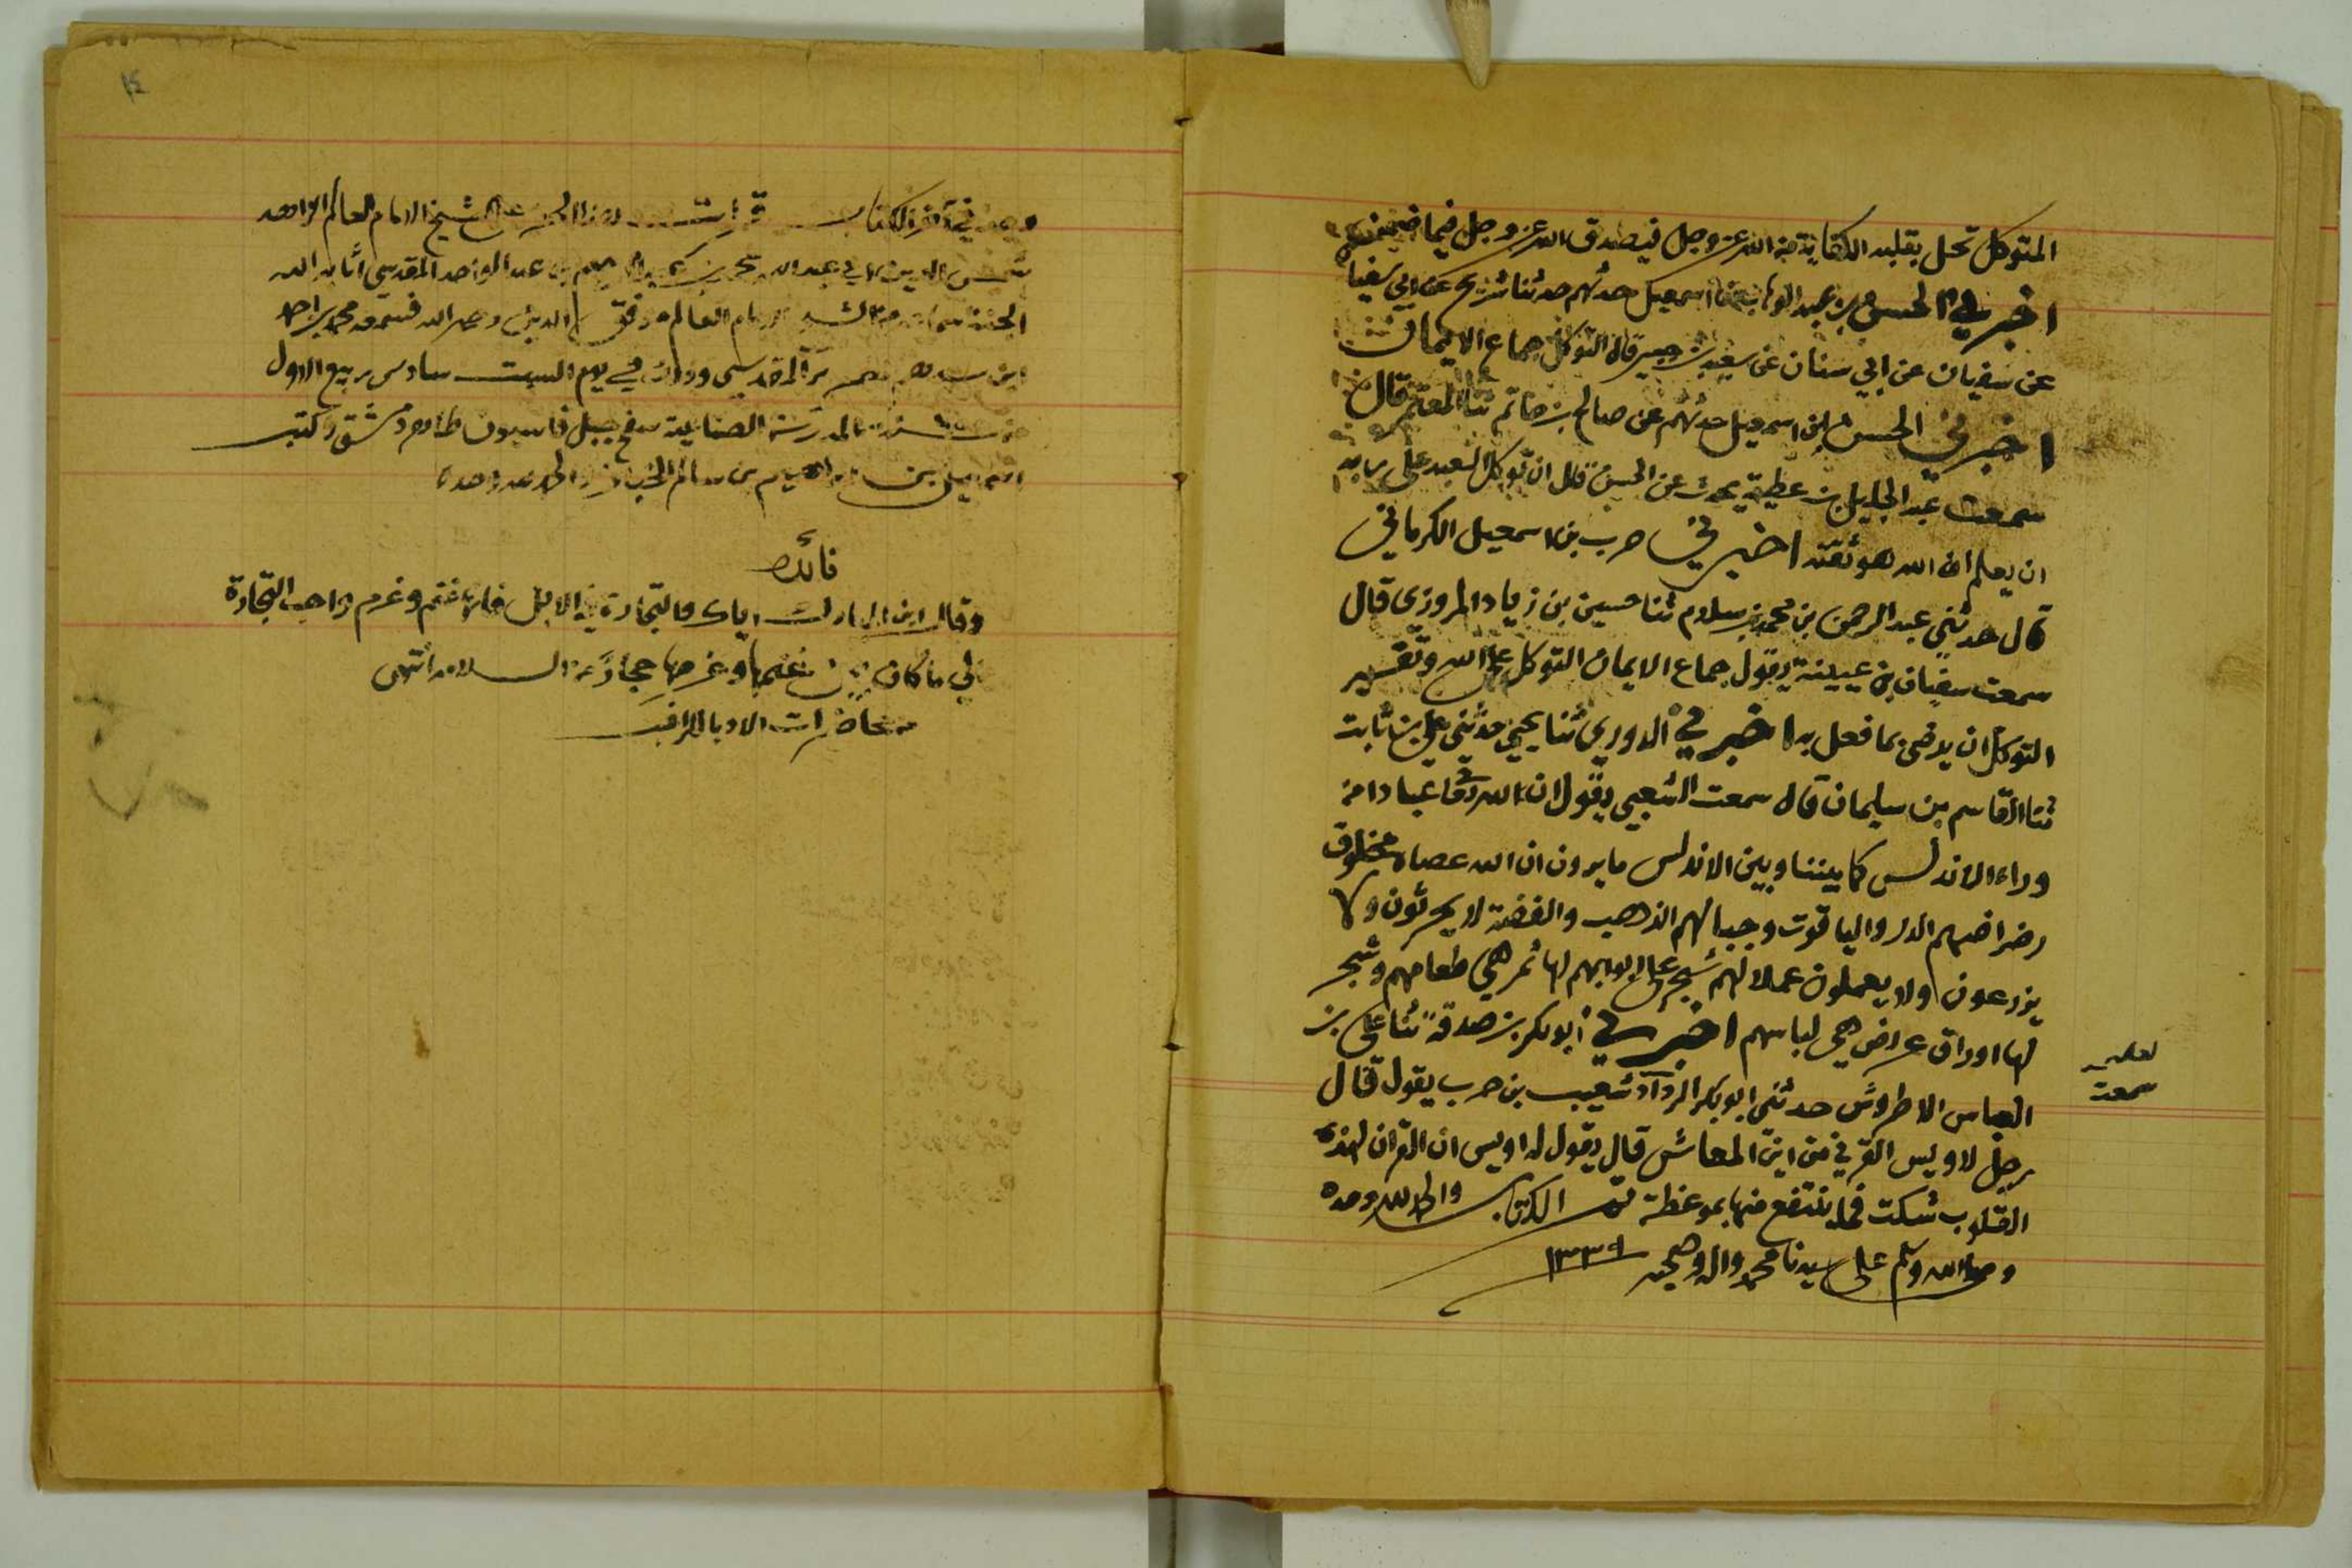 المتوكل تحل بقلبه الكفاية من الله عز وجل فيصدق الله عز وجل فيما ضمن
اخبرني الحسن بن عبد الوهاب ان اسمعيل حدثهم حدثنا شريح عن ابي سفيان
عن سفيان عن ابي سنان عن سعيد بن جبير قال التوكل جماع الايمان
اخبرني الحسن ان اسمعيل حدثهم عن صالح بن حاتم ثنا المعتمر قال
سمعت عبد الجليل بن عطية يحدث عن الحسن قال ان توكل العبد على ربه
ان يعلم ان الله هو ثقته اخبرني حرب بن اسمعيل الكرماني
قال حدثني عبد الرحمن بن محمد بن سلام ثنا حسين بن زياد المروزي قال
سمعت سفيان بن عيينة يقول جماع الايمان التوكل على الله وتفسير
التوكل ان يرضى بما فعل به اخبرني الدوري ثنا يحيى حدثني علي بن ثابت
ثنا القاسم بن سليمان قال سمعت الشعبي يقول ان لله تعا عبادا من
وراء الاندلس كما بيننا وبين الاندلس ما يرون ان الله عصاه مخلوق
رضراضهم الدر والياقوت وجبالهم الذهب والفضة لا يحرثون ولا
يزرعون ولا يعملون عملا لهم شجر على ابوابهم لها ثمر هي طعامهم وشجر
لها اوراق عراض هي لباسهم اخبرني أبو بكر بن صدقة ثنا علي بن
العباس الاطروش حدثني ابو بكر الرداد شعيب بن حرب يقول قال
لعله
سمعت
رجل لاويس القرني من اين المعاش قال يقول له اويس ان القران لهذه
القلوب شكت فما ينتفع منها بموعظة تم الكتاب والحمد لله وحده
وصلى الله وسلم على سيدنا محمد واله وصحبه ١٣٣٩
في آخر الكتاب قرات هذا الجزء على الشيخ الامام العالم الزاهد
شمس الدين ابي عبد الله محمد بن عبد الرحيم بن عبد الواحد المقدسي أثابه الله
الجنة الامام العالم موفق الدين رحمه الله فسمعه محمد بن احمد
المقدسي وذلك في يوم السبت سادس ربيع الاول
بالمدرسة الضيائية سفح جبل قاسيون ظاهر دمشق وكتب
ابراهيم بن سالم الخباز والحمد لله وحده
فائدة
وقال ابن المبارك اياك والتجارة في الابل فانها غنم وغرم واحب التجارة
الي ما كان بين غنمها وغرمها حجاز السلامة انتهى
محاضرات الادبا للراغب